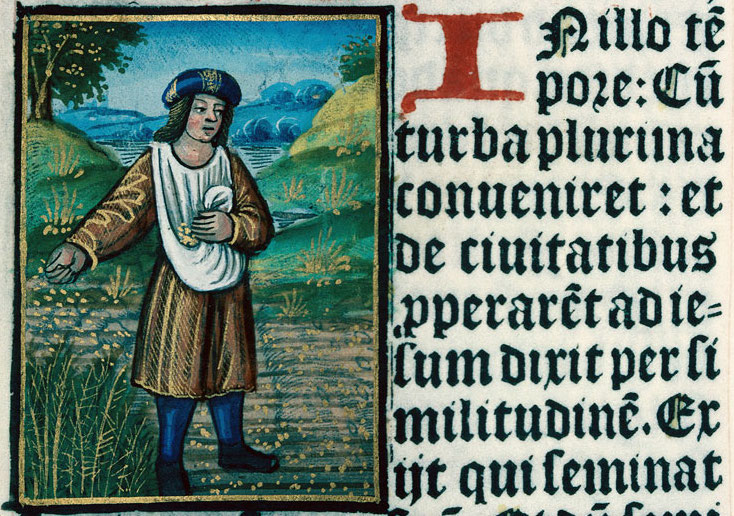 IN illo tē
pore: Cū
turba plurima
conueniret : et
de ciuitatibus
ꝓperarēt ad ie=
sum dixit per si
militudinē. Ex
ijt qui seminat